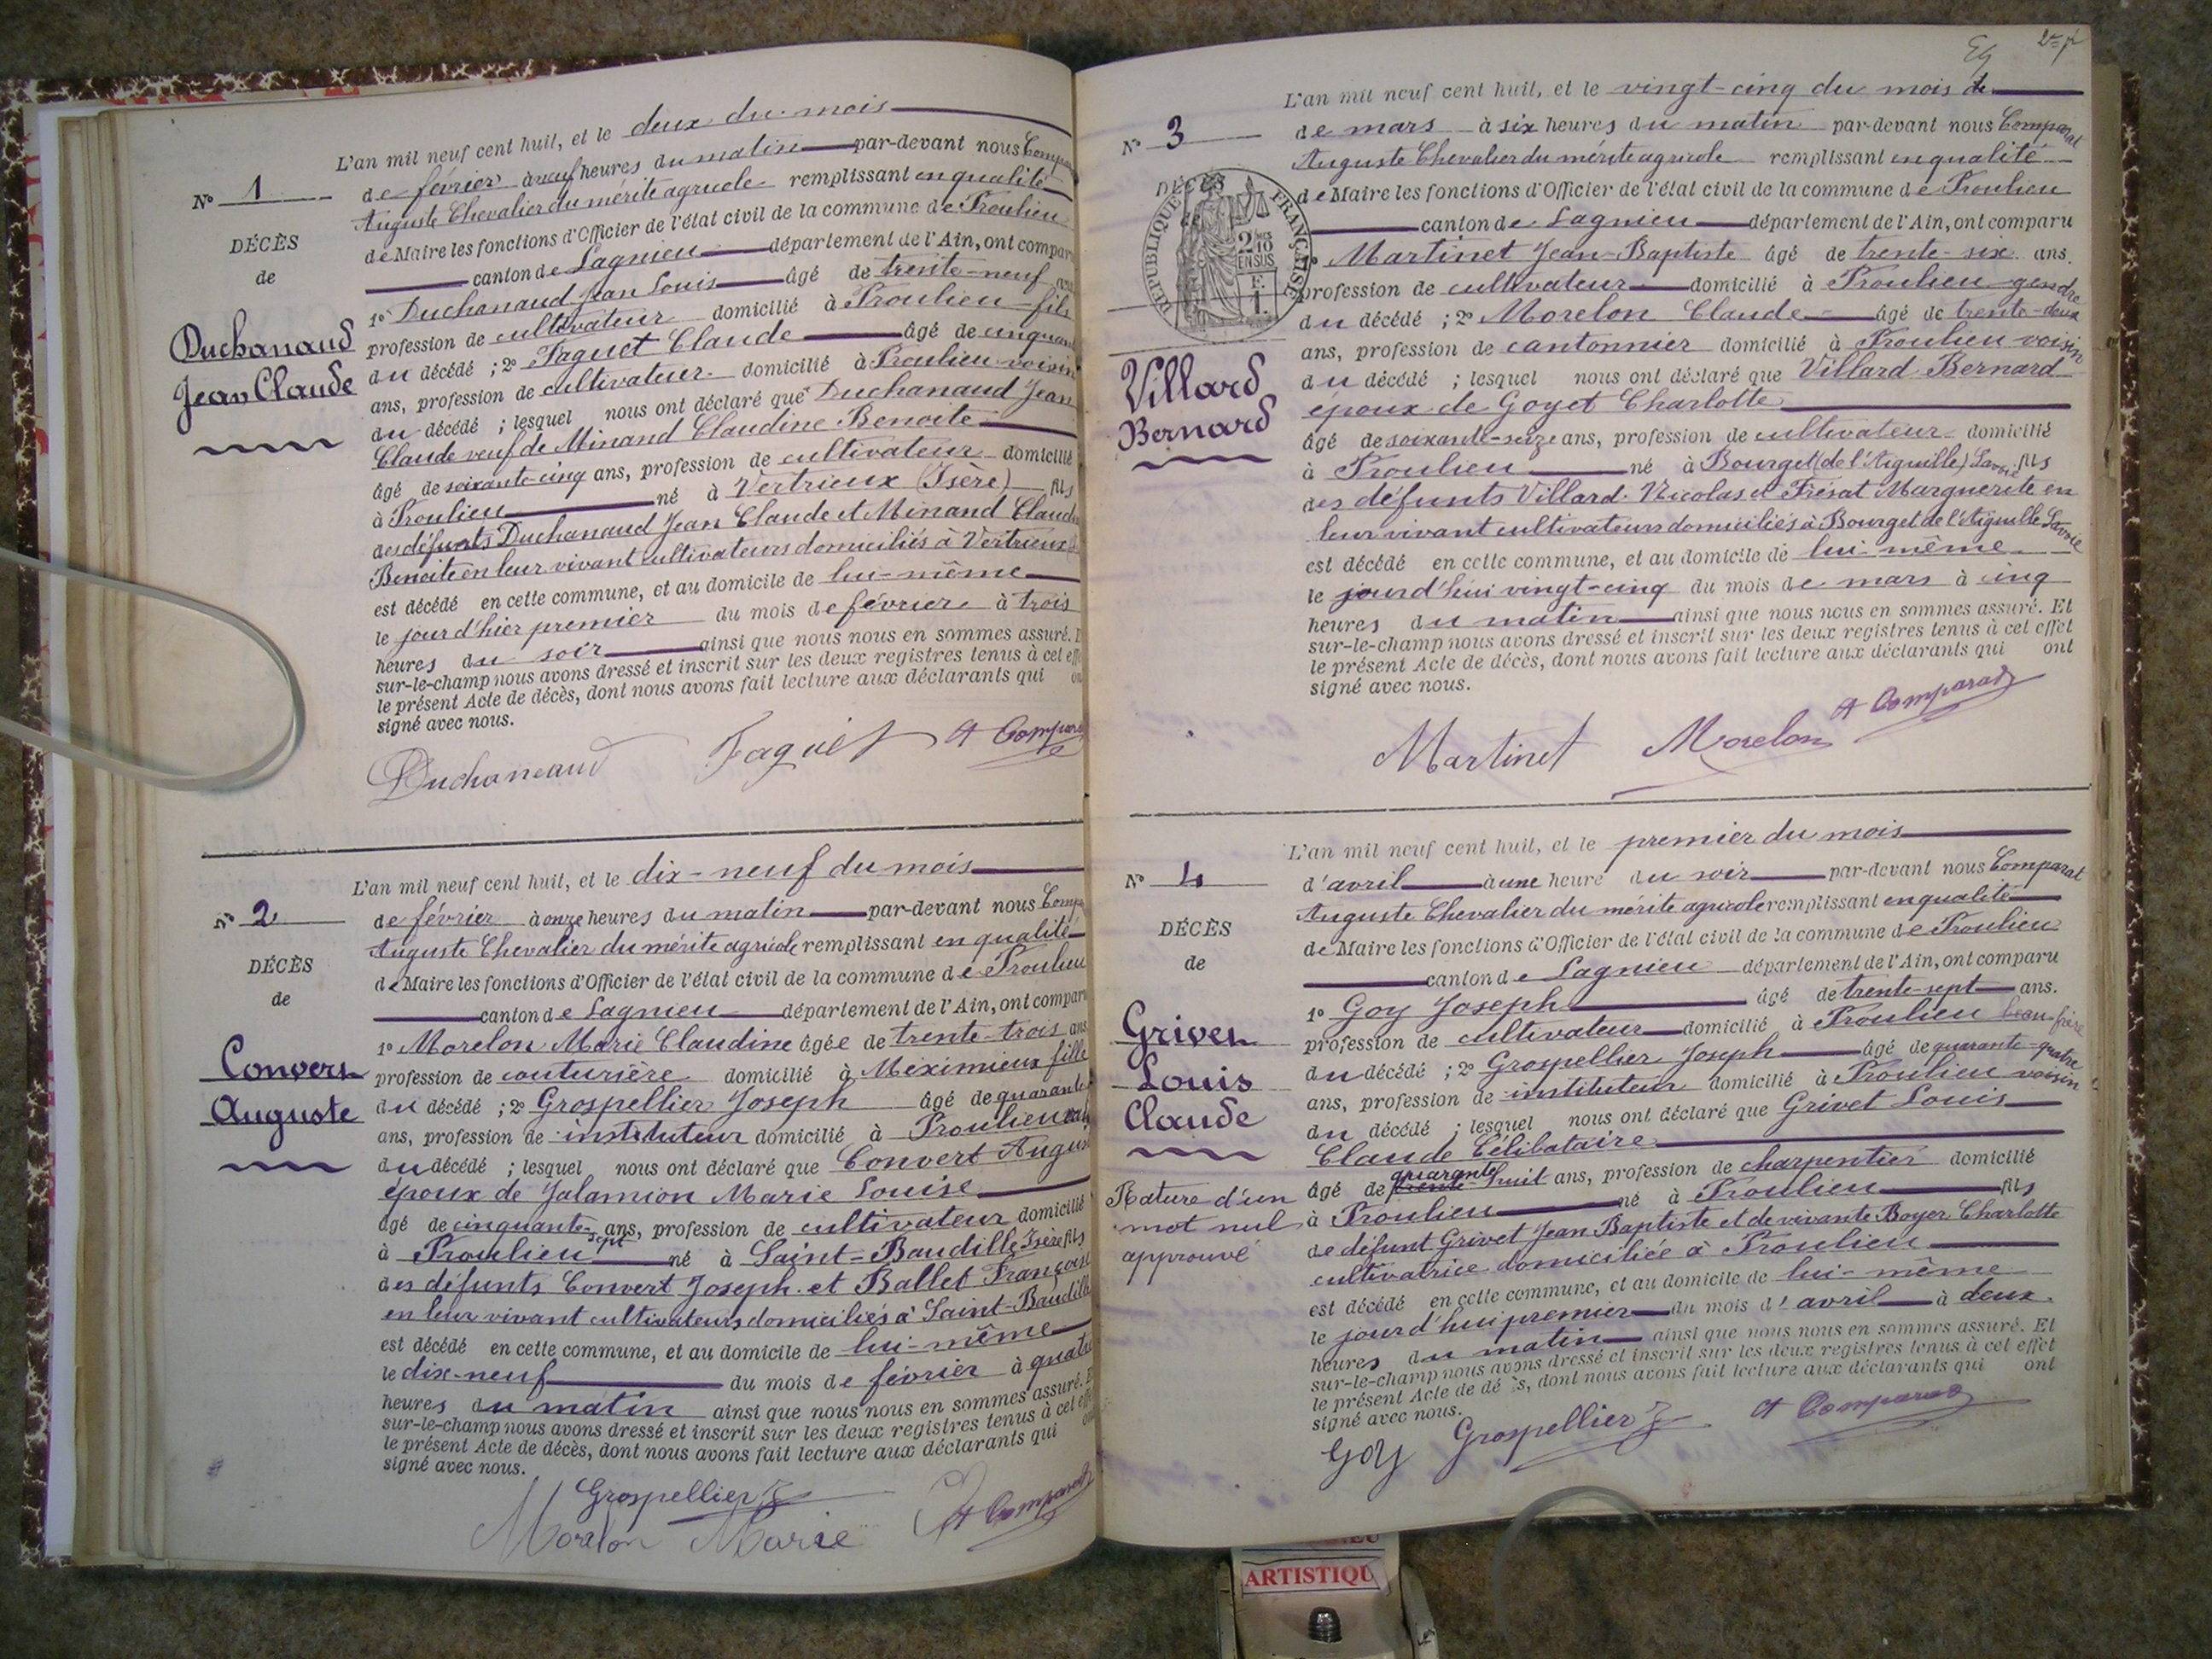 L'an mil neuf cent huit, et le deux du mois
Nº 1
de février à neuf heures du matin par-devant nous
Auguste Chevalier du mérite agricole remplissant en qualité
DÉCÈS
de Maire les fonctions d'Officier de l'état civil de la commune de Proulieu
de
canton de Lagnieu département de l'Ain, ont
1º Duchanaud Jean Louis âgé de trente-neuf
Duchanaud
profession de cultivateur domicilié à Proulieu fils
du décédé ; 2º Faguet Claude âgé de
Jean Claude
ans, profession de cultivateur domicilié à Proulieu voisin
du décédé ; lesquel nous ont déclaré que Duchanaud Jean
Claude veuf de Minand Claudine Benoite
âgé de soixante-cinq ans, profession de cultivateur domicilié
à Proulieu né à Vertrieux (Isère) fils
des défunts Duchanaud Jean Claude et Minand
Benoite en leur vivant cultivateurs domiciliés à Vertrieux
est décédé en cette commune, et au domicile de lui-même
le jour d'hier premier du mois de février à trois
heures du soir ainsi que nous nous en sommes assuré.
sur-le-champ nous avons dressé et inscrit sur les deux registres tenus à cet
le présent Acte de décès, dont nous avons fait lecture aux déclarants qui
signé avec nous.
Duchaneaud Faguet A Compara
L'an mil neuf cent huit, et le dix-neuf du mois
Nº 2
de février à onze heures du matin par-devant nous
Auguste Chevalier du mérite agricole remplissant en qualité
DÉCÈS
de Maire les fonctions d'Officier de l'état civil de la commune de Proulieu
de
canton de Lagnieu département de l'Ain, ont
1º Morelon Marie Claudine âgée de trente-trois ans
Convert
profession de couturière domicilié à Méximieux fille
du décédé ; 2º Grospellier Joseph âgé de quarante
Auguste
ans, profession de instituteur domicilié à Proulieu
du décédé ; lesquel nous ont déclaré que Convert
époux de Jalamion Marie Louise
âgé de cinquante-sept ans, profession de cultivateur domicilié
à Proulieu né à Saint-Baudille Isère fils
des défunts Convert Joseph et Ballet Françoise
en leur vivant cultivateurs domiciliés à Saint-Baudille
est décédé en cette commune, et au domicile de lui-même
le dix-neuf du mois de février à quatre
heures du matin ainsi que nous nous en sommes assuré.
sur-le-champ nous avons dressé et inscrit sur les deux registres tenus à cet
le présent Acte de décès, dont nous avons fait lecture aux déclarants qui
signé avec nous.
Grospellier J
Morelon Marie A Comparat
L'an mil neuf cent huit, et le vingt-cinq du mois de
Nº 3
de mars à six heures du matin par-devant nous Comparat
Auguste Chevalier du mérite agricole remplissant en qualité
DÉCÈS
RÉPUBLIQUE FRANÇAISE
2/10 EN SUS
F. 1.
de Maire les fonctions d'Officier de l'état civil de la commune de Proulieu
canton de Lagnieu département de l'Ain, ont comparu
1º Martinet Jean-Baptiste âgé de trente-six ans.
profession de cultivateur domicilié à Proulieu gendre
du décédé ; 2º Morelon Claude âgé de trente-deux
ans, profession de cantonnier domicilié à Proulieu voisin
Villard
du décédé ; lesquel nous ont déclaré que Villard Bernard
époux de Goyet Charlotte
Bernard
âgé de soixante-seize ans, profession de cultivateur domicilié
à Proulieu né à Bourget (de l'Aiguille) Savoie fils
des défunts Villard Nicolas et Frésat Marguerite en
leur vivant cultivateurs domiciliés à Bourget de l'Aiguille Savoie
est décédé en cette commune, et au domicile de lui-même
le jourd'hui vingt-cinq du mois de mars à cinq
heures du matin ainsi que nous nous en sommes assuré. Et
sur-le-champ nous avons dressé et inscrit sur les deux registres tenus à cet effet
le présent Acte de décès, dont nous avons fait lecture aux déclarants qui ont
signé avec nous.
Martinet Morelon A Comparat
L'an mil neuf cent huit, et le premier du mois
Nº 4
d'avril à une heure du soir par-devant nous Comparat
Auguste Chevalier du mérite agricole remplissant en qualité
DÉCÈS
de Maire les fonctions d'Officier de l'état civil de la commune de Proulieu
de
canton de Lagnieu département de l'Ain, ont comparu
1º Goy Joseph âgé de trente-sept ans.
Grivet
profession de cultivateur domicilié à Proulieu beau-frère
du décédé ; 2º Grospellier Joseph âgé de quarante-quatre
Louis
ans, profession de instituteur domicilié à Proulieu voisin
Claude
du décédé ; lesquel nous ont déclaré que Grivet Louis
Claude Célibataire
âgé de quarante huit ans, profession de charpentier domicilié
Rature d'un
mot nul
approuvé
à Proulieu né à Proulieu fils
de défunt Grivet Jean Baptiste et de vivante Boyer Charlotte
cultivatrice domiciliée à Proulieu
est décédé en cette commune, et au domicile de lui-même
le jourd'hui premier du mois d'avril à deux
heures du matin ainsi que nous nous en sommes assuré. Et
sur-le-champ nous avons dressé et inscrit sur les deux registres tenus à cet effet
le présent Acte de dé s, dont nous avons fait lecture aux déclarants qui ont
signé avec nous.
Goy Grospellier J A Comparat
ARTISTIQU